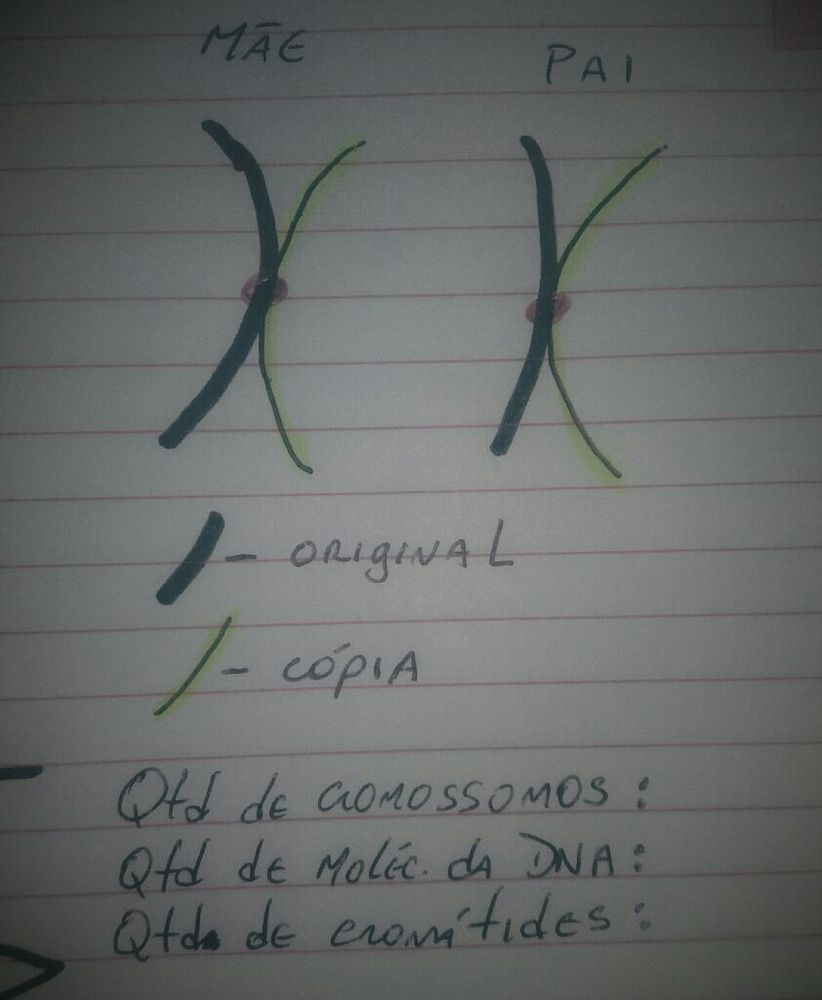 MÃE PAI
- ORIGINAL
- CÓPIA
Qtd de cromossomos :
Qtd de Moléc. da DNA :
Qtd. de cromátides :